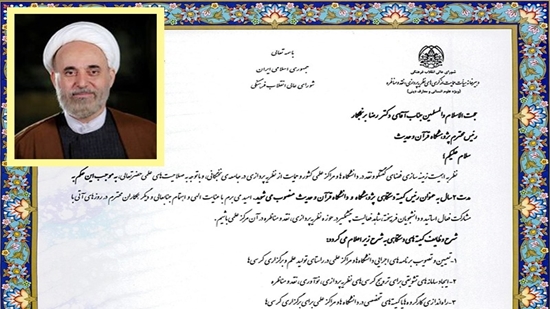 باسمه تعالی
جمهوری اسلامی ایران
شورای عالی انقلاب فرهنگی
شورای عالی انقلاب فرهنگی
(ویژه علوم انسانی و معارف دینی)
حجت الاسلام والمسلمین جناب آقای دکتر رضا برنجکار
رئیس محترم پژوهشگاه قرآن و حدیث
سلام علیکم؛
نظر به اهمیت زمینه سازی فضای گفتگو و نقد در دانشگاه ها و مراکز علمی کشور و حمایت از نظریه پردازی در جامعه ی نخبگانی، و با توجه به صلاحیت های علمی حضرتعالی، به موجب این حکم به
مدت ۲ سال به عنوان رئیس کمیته دستگاهی پژوهشگاه و دانشگاه قرآن و حدیث منصوب می شوید. امید می برم با عنایت الهی و اهتمام جنابعالی و دیگر همکاران محترم در روزهای آتی با
مشارکت فعال اساتید و دانشجویان فرهیخته، شاهد فعالیت چشمگیر در حوزه نظریه پردازی، نقد و مناظره در آن مرکز علمی باشیم.
شرح وظایف کمیته های دستگاهی به شرح زیر اعلام می گردد:
۱- تعیین و تصویب برنامه های اجرایی دانشگاه ها و مراکز علمی در راستای تولید علم و برگزاری کرسی ها
۲- ایجاد سامانه های تشویقی برای ترویج کرسی های نظریه پردازی، نوآوری، نقد و مناظره
۳- راه اندازی کارگروه ها و کمیته های تخصصی در دانشگاه ها و مراکز علمی برای برگزاری کرسی ها